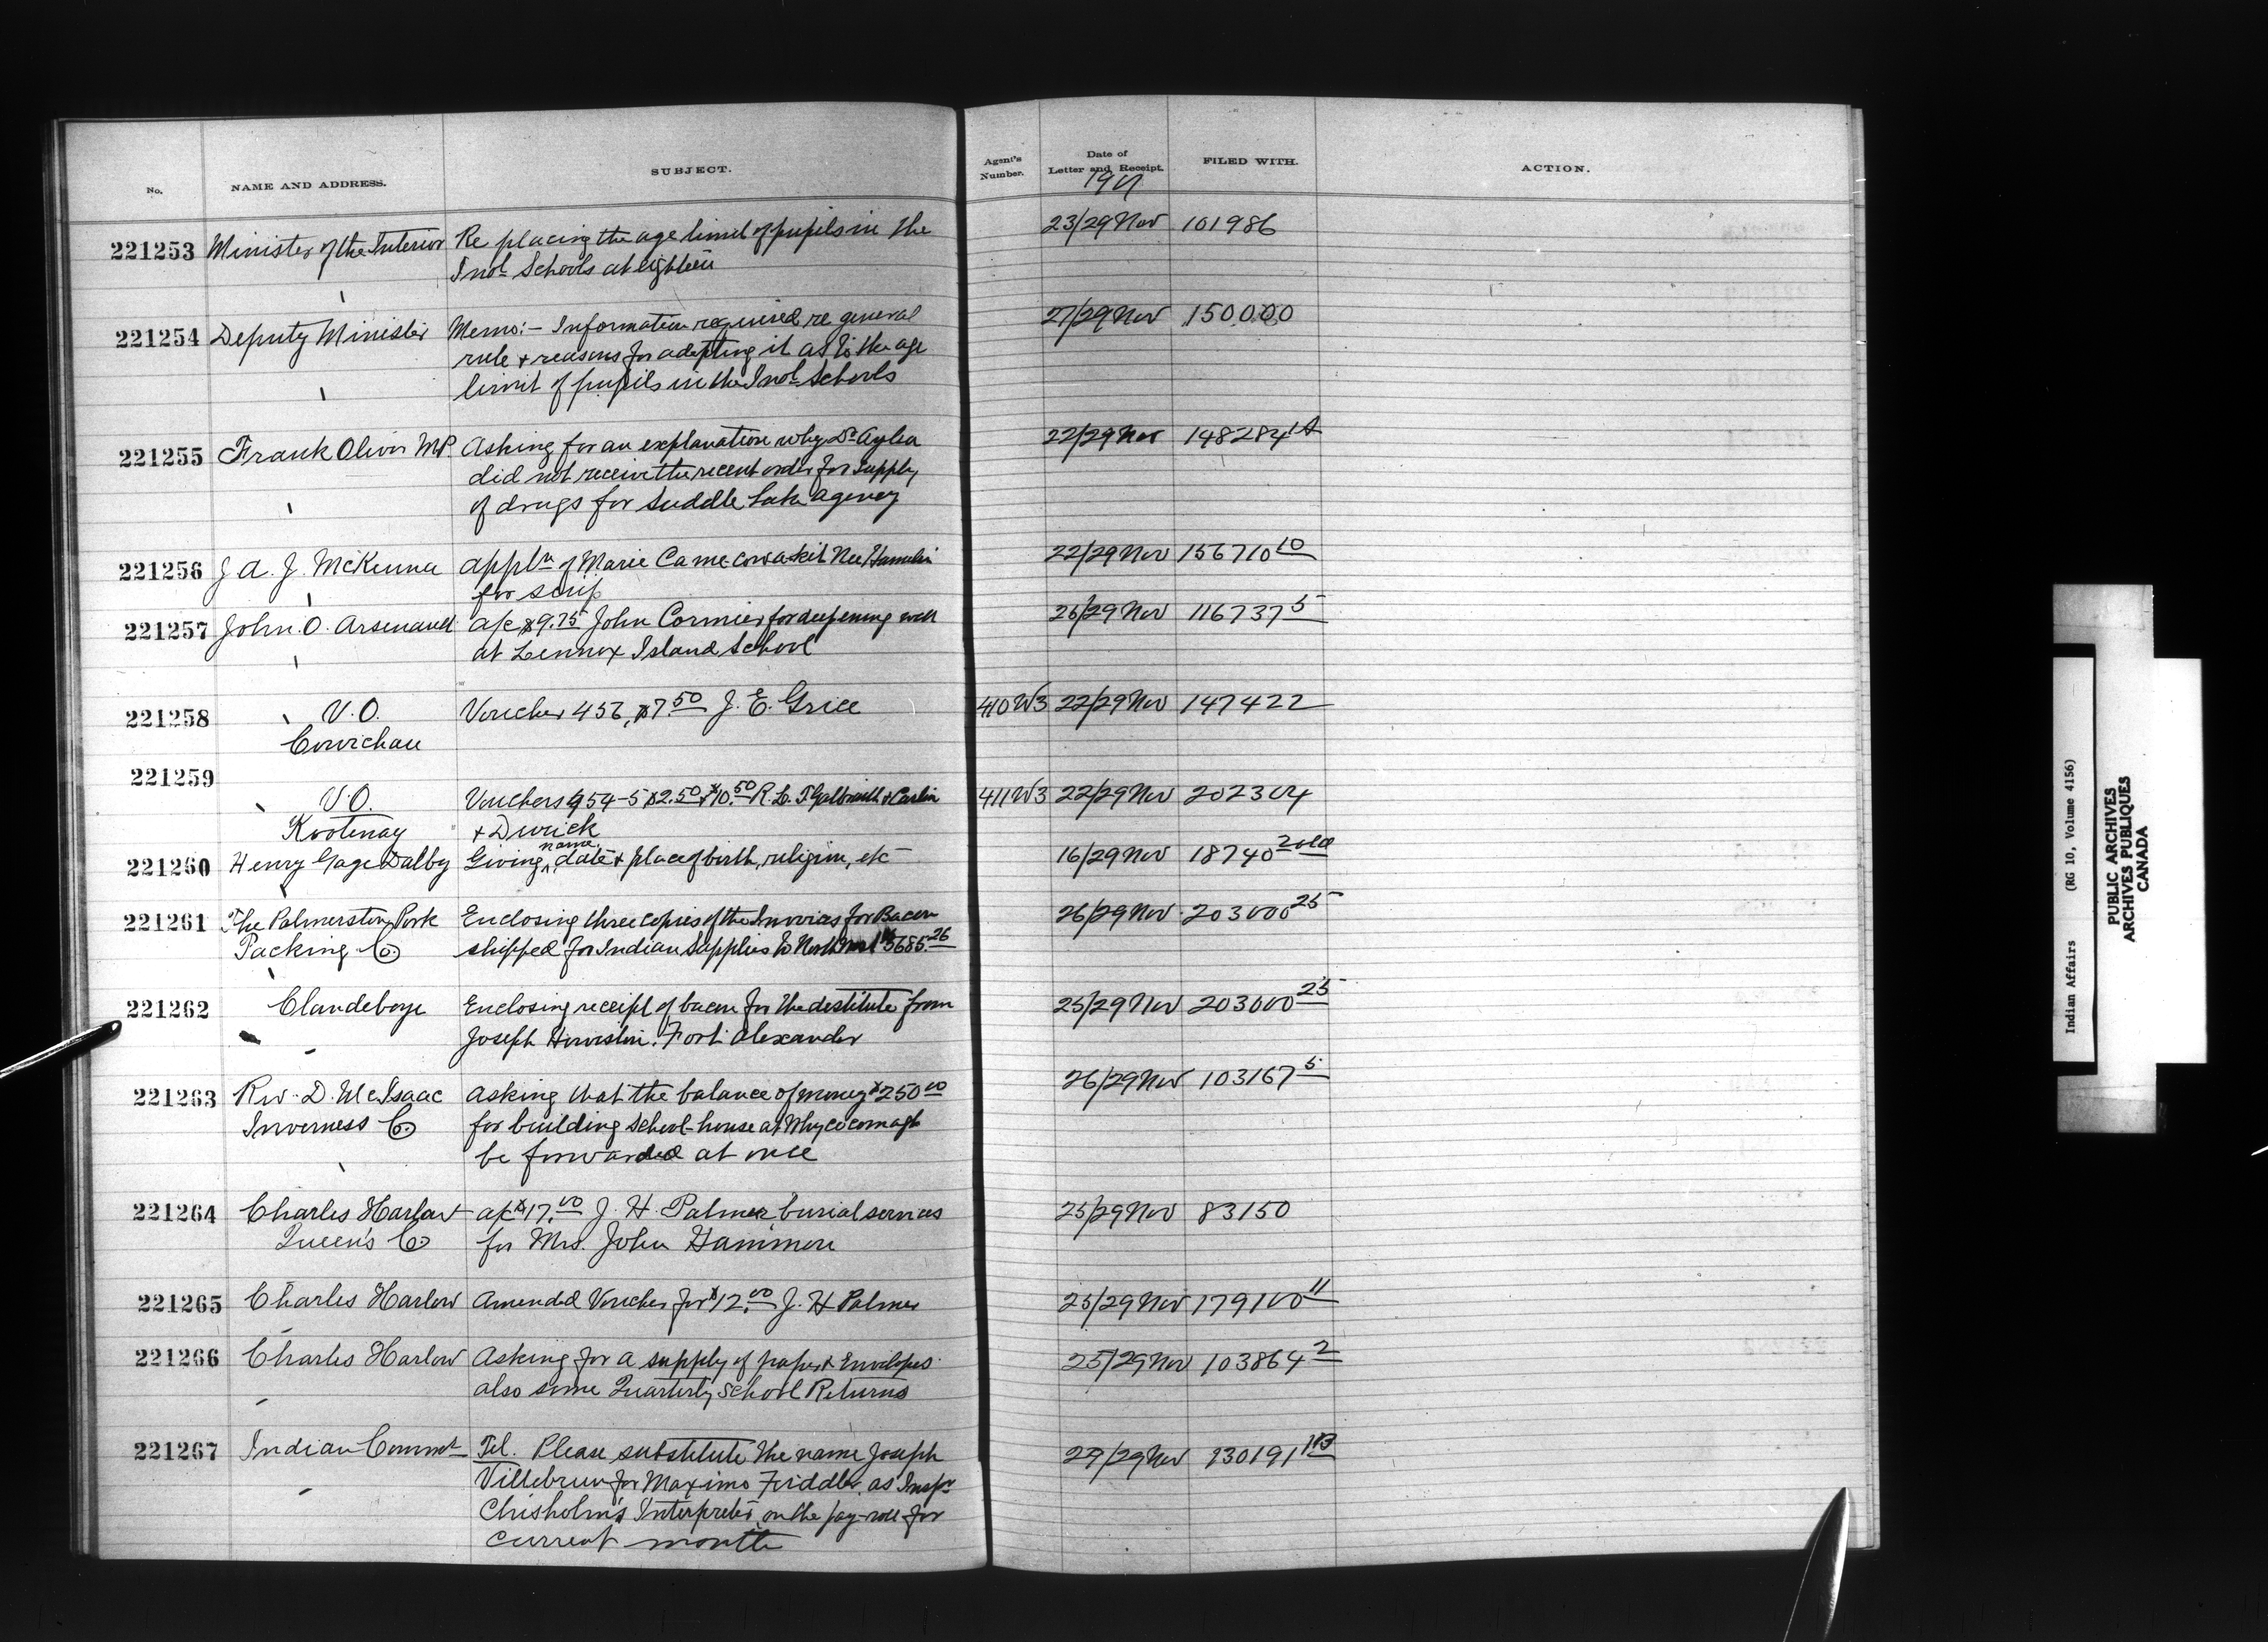 No. NAME AND ADDRESS. SUBJECT. Agent's Number. Date of Letter and Receipt. FILED WITH. ACTION.
221253 Minister of the Interior Re placing the age limit of pupils in the 23/29 Nov 101986
Indl Schools at eighteen
221254 Deputy Minister Memo:- Information required re general 27/29 Nov 150000
rule & reasons for adopting it as to the age
limit of pupils in the Indl Schools
221255 Frank Oliver MP. Asking for an explanation why Dr Aylen 22/29 Nov 148284
did not receive the recent order for supply
of drugs for Saddle Lake Agency
221256 J. A. J. McKenna Appln of Marie Ca-me-cowa-kit Nee Hamelin 22/29 Nov 156710 10
for scrip
221257 John O. Arsenault a/c $9.75 John Cormier for deepening well 26/29 Nov 116737 5
at Lennox Island School
221258 V.O. Voucher 456, $7.50 J. E. Grice 410 W3 22/29 Nov 147422
Cowichan
221259
V.O. Vouchers 454-5 $2.50 & $10.50 R. L. T. Galbraith & Carlin 411 W3 22/29 Nov 202304
Kootenay & Durick
name
221260 Henry Gage Dalby Giving date & place of birth, religion, etc 16/29 Nov 18740
221261 The Palmerston Pork Enclosing three copies of the Invoices for Bacon 26/29 Nov 203000 25
Packing Co. shipped for Indian Supplies to North West $5685.26
221262 Clandeboye Enclosing receipt of bacon for the destitute from 25/29 Nov 203000 25
Joseph Fort Alexander
221263 Rev. D. McIsaac Asking that the balance of money $250.00 26/29 Nov 103167 5
Inverness Co. for building School-house at Whycocomagh
be forwarded at once
221264 Charles Harlow a/c $17.00 J. H. Palmer, burial services 25/29 Nov 83150
Queen's Co. for Mrs. John Hammon
221265 Charles Harlow Amended Voucher for $12.00 J. H Palmer 25/29 Nov 179100 11
221266 Charles Harlow Asking for a supply of paper & Envelopes 25/29 Nov 103864 2
also some Quarterly School Returns
221267 Indian Commr Tel. Please substitute the name Joseph 29/29 Nov 130191
Villebrun for Maximo Fiddler, as Inspr
Chisholm's Interpreter, on the pay-roll for
current month
Indian Affairs (RG 10, Volume 4156)
PUBLIC ARCHIVES
ARCHIVES PUBLIQUES
CANADA